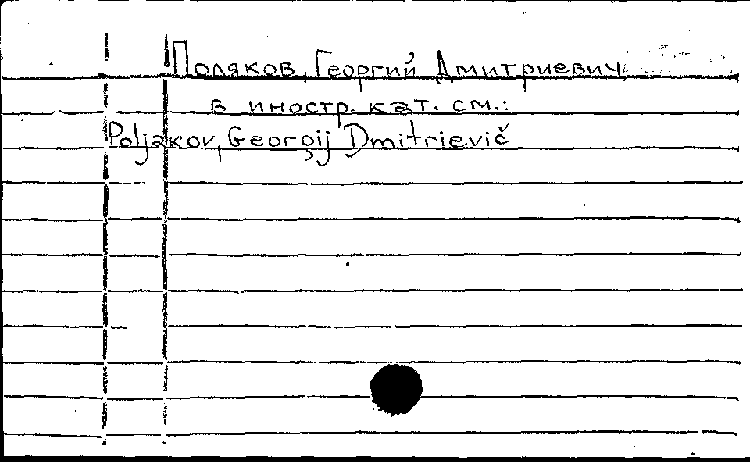 Поляков, Георгий Дмитриевич
в иностр. кат. см.:
Poljakov, Georgij Dmitrievič